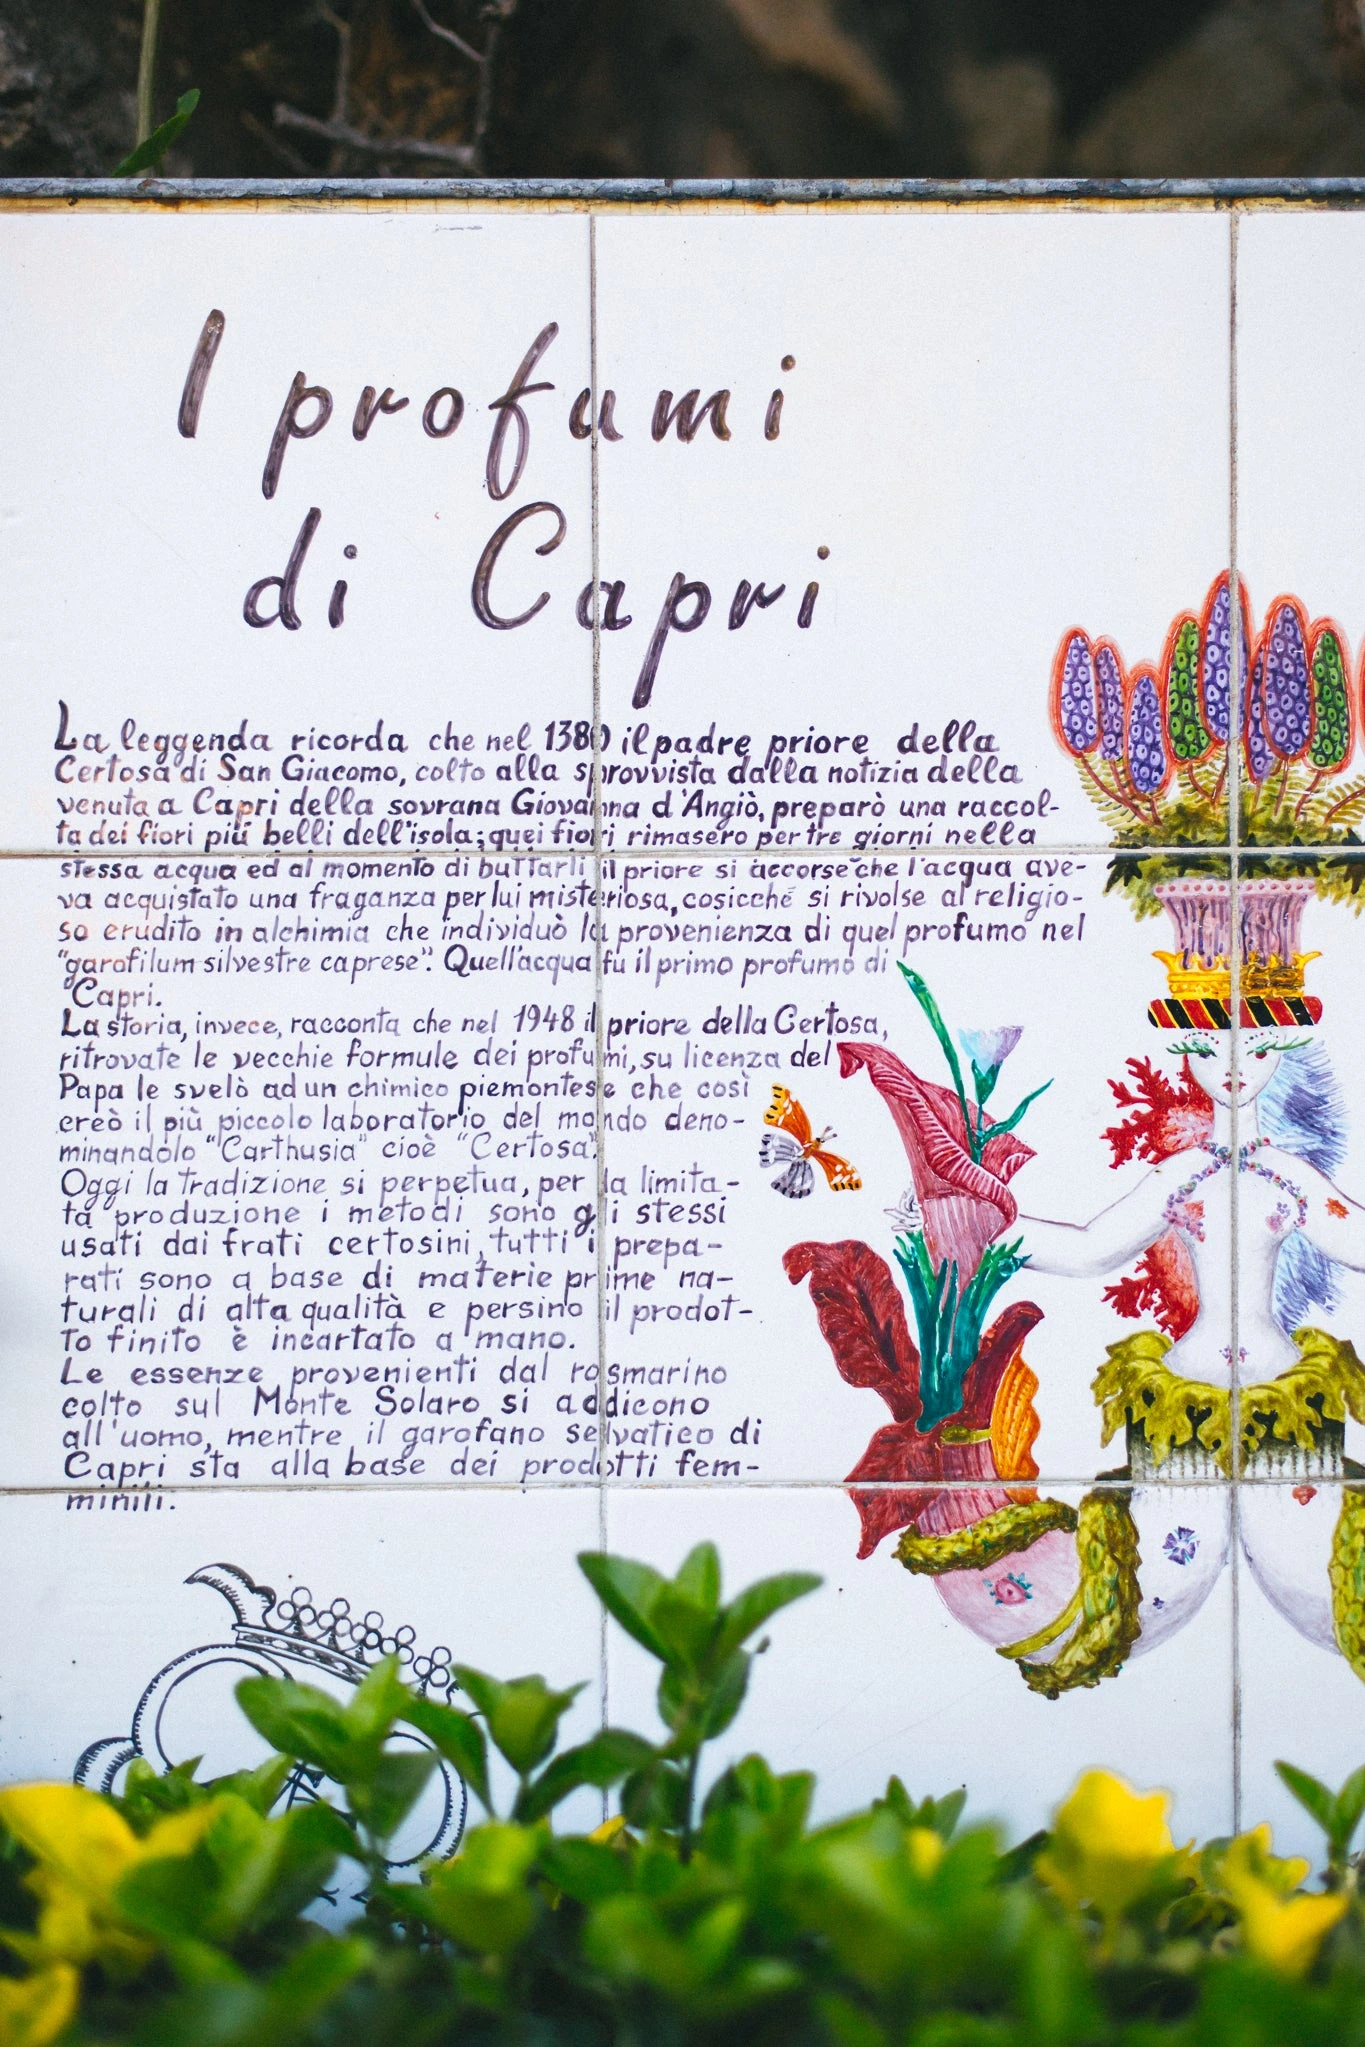 I profumi
di Capri
La leggenda ricorda che nel 1380 il padre priore della
Certosa di San Giacomo, colto alla sprovvista dalla notizia della
venuta a Capri della sovrana Giovanna d'Angiò, preparò una raccol-
ta dei fiori più belli dell'isola; quei fiori rimasero per tre giorni nella
stessa acqua ed al momento di buttarli il priore si accorse che l'acqua ave-
va acquistato una fraganza per lui misteriosa, cosicché si rivolse al religio-
so erudito in alchimia che individuò la provenienza di quel profumo nel
"garofilum silvestre caprese". Quell'acqua fu il primo profumo di
Capri.
La storia, invece, racconta che nel 1948 il priore della Certosa,
ritrovate le vecchie formule dei profumi, su licenza del
Papa le svelò ad un chimico piemontese che così
creò il più piccolo laboratorio del mondo deno-
minandolo "Carthusia" cioè "Certosa".
Oggi la tradizione si perpetua, per la limita-
ta produzione i metodi sono gli stessi
usati dai frati certosini, tutti i prepa-
rati sono a base di materie prime na-
turali di alta qualità e persino il prodot-
to finito è incartato a mano.
Le essenze provenienti dal rosmarino
colto sul Monte Solaro si addicono
all'uomo, mentre il garofano selvatico di
Capri sta alla base dei prodotti fem-
minili.